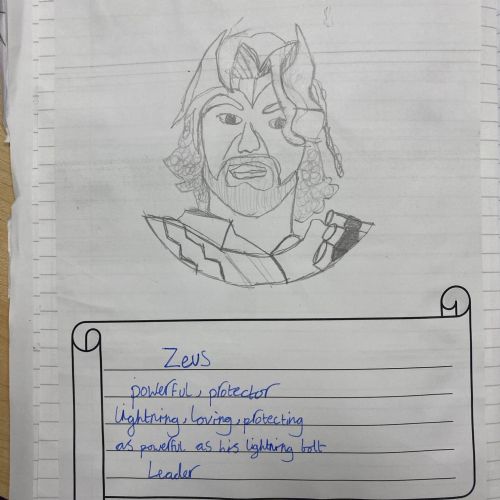 Zeus
powerful, protector
lightning, loving, protecting
as powerful as his lightning bolt
Leader